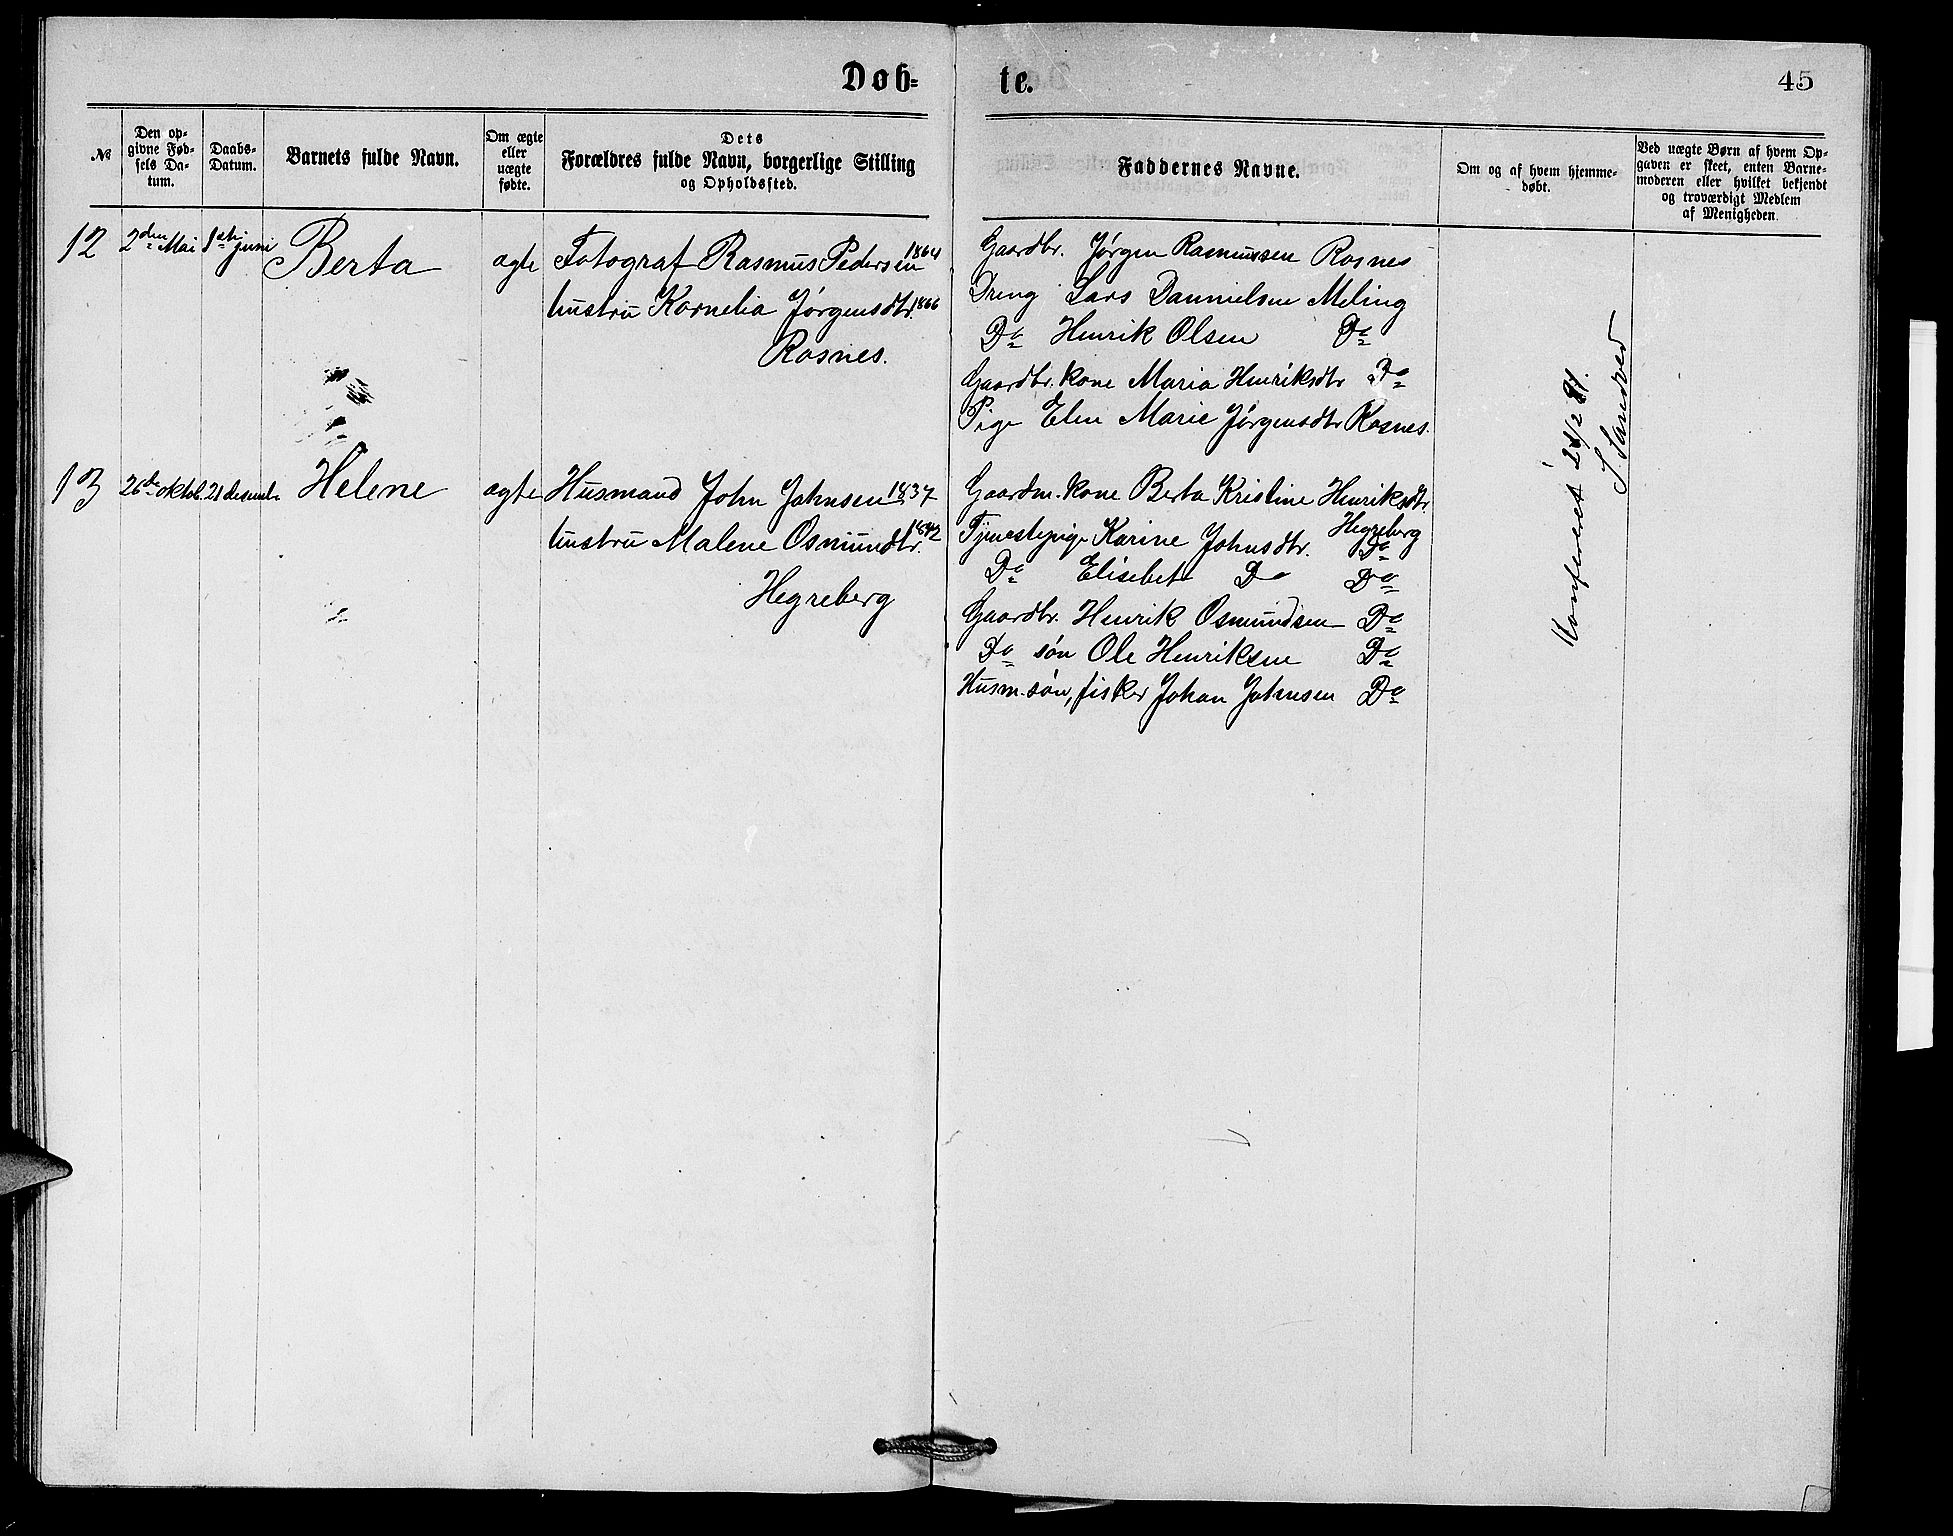 Døb-
te.
45
№
Den op-
givne Fød-
sels Da-
tum.
Daabs-
Datum.
Barnets fulde Navn.
Om ægte
eller
uægte
fødte.
Dets
Forældres fulde Navn, borgerlige Stilling
og Opholdssted.
Faddernes Navne.
Om og af hvem hjemme-
døbt.
Ved uægte Børn af hvem Op-
gaven er skeet, enten Barne-
moderen eller hvilket bekjendt
og troværdigt Medlem
af Menigheden.
12
2den Mai
1ste juni
Berta
ægte
Fotograf Rasmus Pedersen 1864
hustru Kornelia Jørgensdtr. 1866
Rosnes.
Gaardbr. Jørgen Rasmussen Rosnes
Dreng Lars Dannielsen Meling
Do Henrik Olsen Do
Gaardbr. kone Maria Henriksdtr Do
Pige Elen Marie Jørgensdtr Rosnes.
13
26de oktob.
21 desemb.
Helene
ægte
Husmand John Johnsen 1837
hustru Malene Osmundtr. 1842
Hegreberg
Gaardm. kone Berta Kristine Henriksdtr
Hegreberg
Tjenestepige Karine Johnsdtr. Do
Do Elisebet Do Do
Gaardbr. Henrik Osmundsen Do
Do søn Ole Henriksen Do
Husm. søn, fisker Johan Johnsen Do
Konfereret 24/2 91.
S Sandved